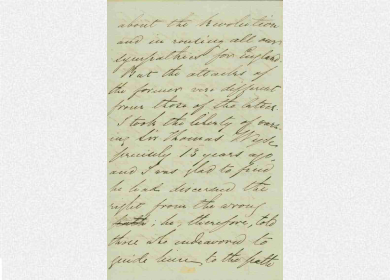 about the Revolution
and in rousing all our
sympathies for England.
But the attacks of
the former were different
from those of the latter.
I took the liberty of warn-
ing Sir Thomas Wyse
precisely 13 years ago
and I was glad to find
he had discerned the
right from the wrong
path; he, therefore, told
those who endeavored to
guide him to the path